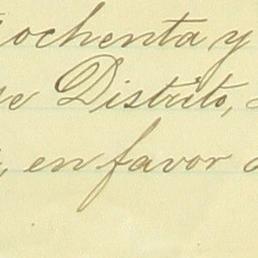 ochenta y
Distrito,
, en favor